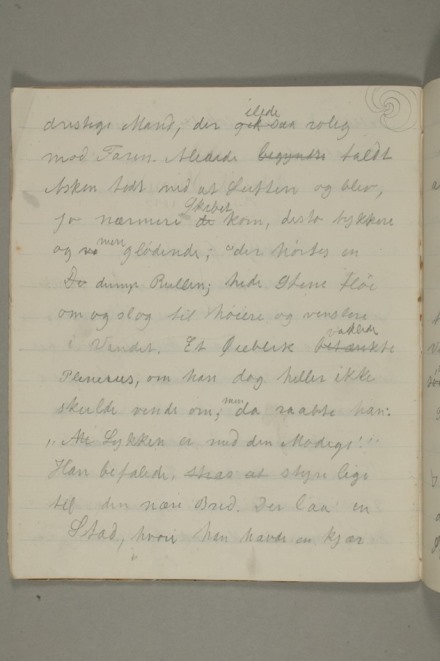 dristige Mand, der ilede gik saa rolig
mod Faren. Allerede begyndte faldt
Asken tæt ned af Luften og blev,
jo nærmere de Skibet kom, desto tykkere
og mere glødende; der hørtes en
dump Rullen; hede Stene fløi
om og slog til høire og venstre
i Vandet. Et Øieblik vaklede betænkte
Plenius, om han dog heller ikke
skulde vende om; men da raabte han:
„Nei Lykken er med den Modige!"
Han befalede, strax at styre lige
til den nære Bred. Der laa en
Stad, hvori han havde en kjær